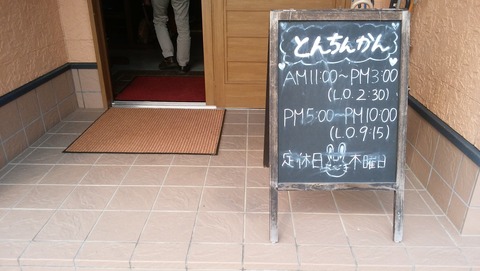 とんちんかん
AM11:00～PM3:00
(L.O.2:30)
PM5:00～PM10:00
(L.O.9:15)
定休日 木曜日